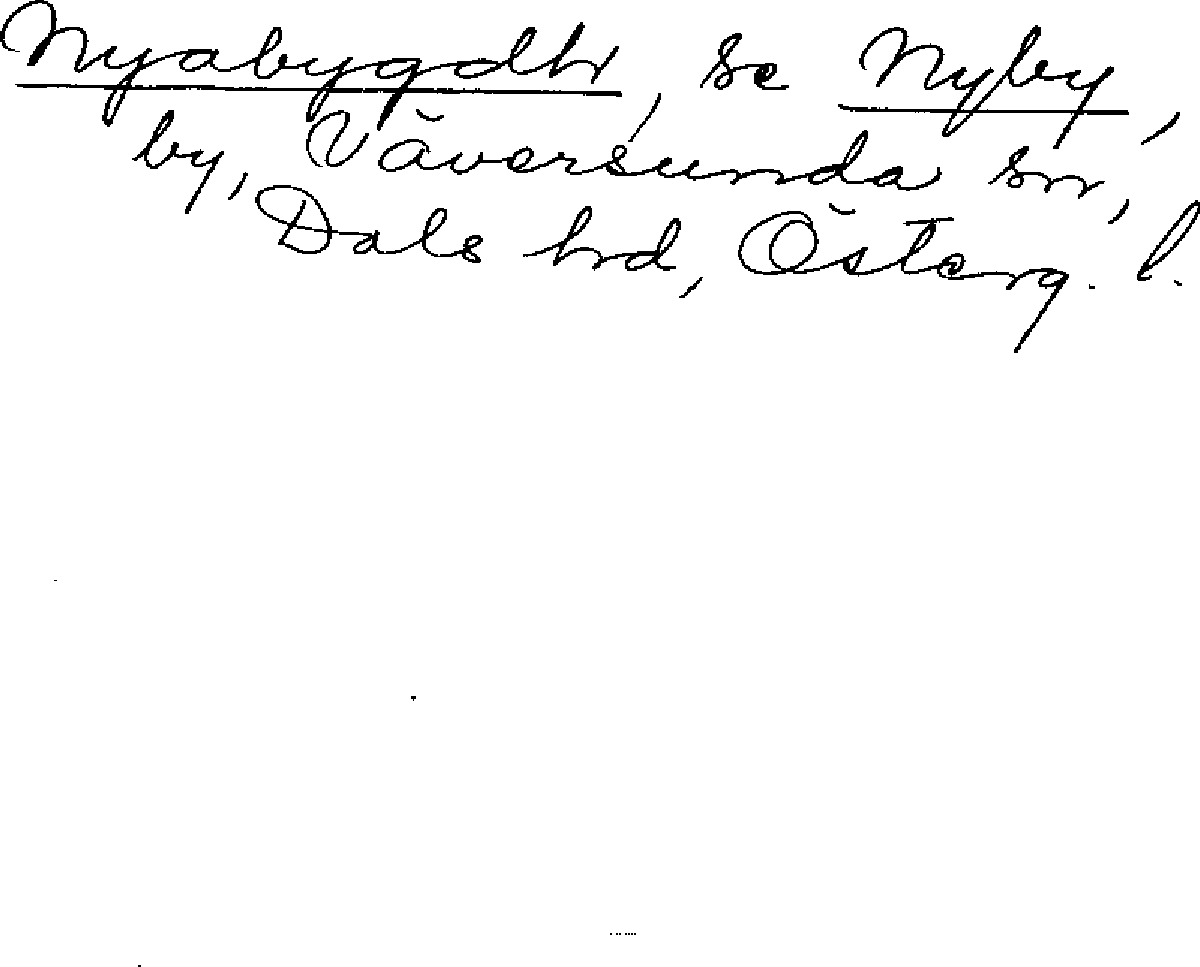 Nyabygdh, se Nyby,
by, Väversunda sn,
Dals hrd, Österg. l.